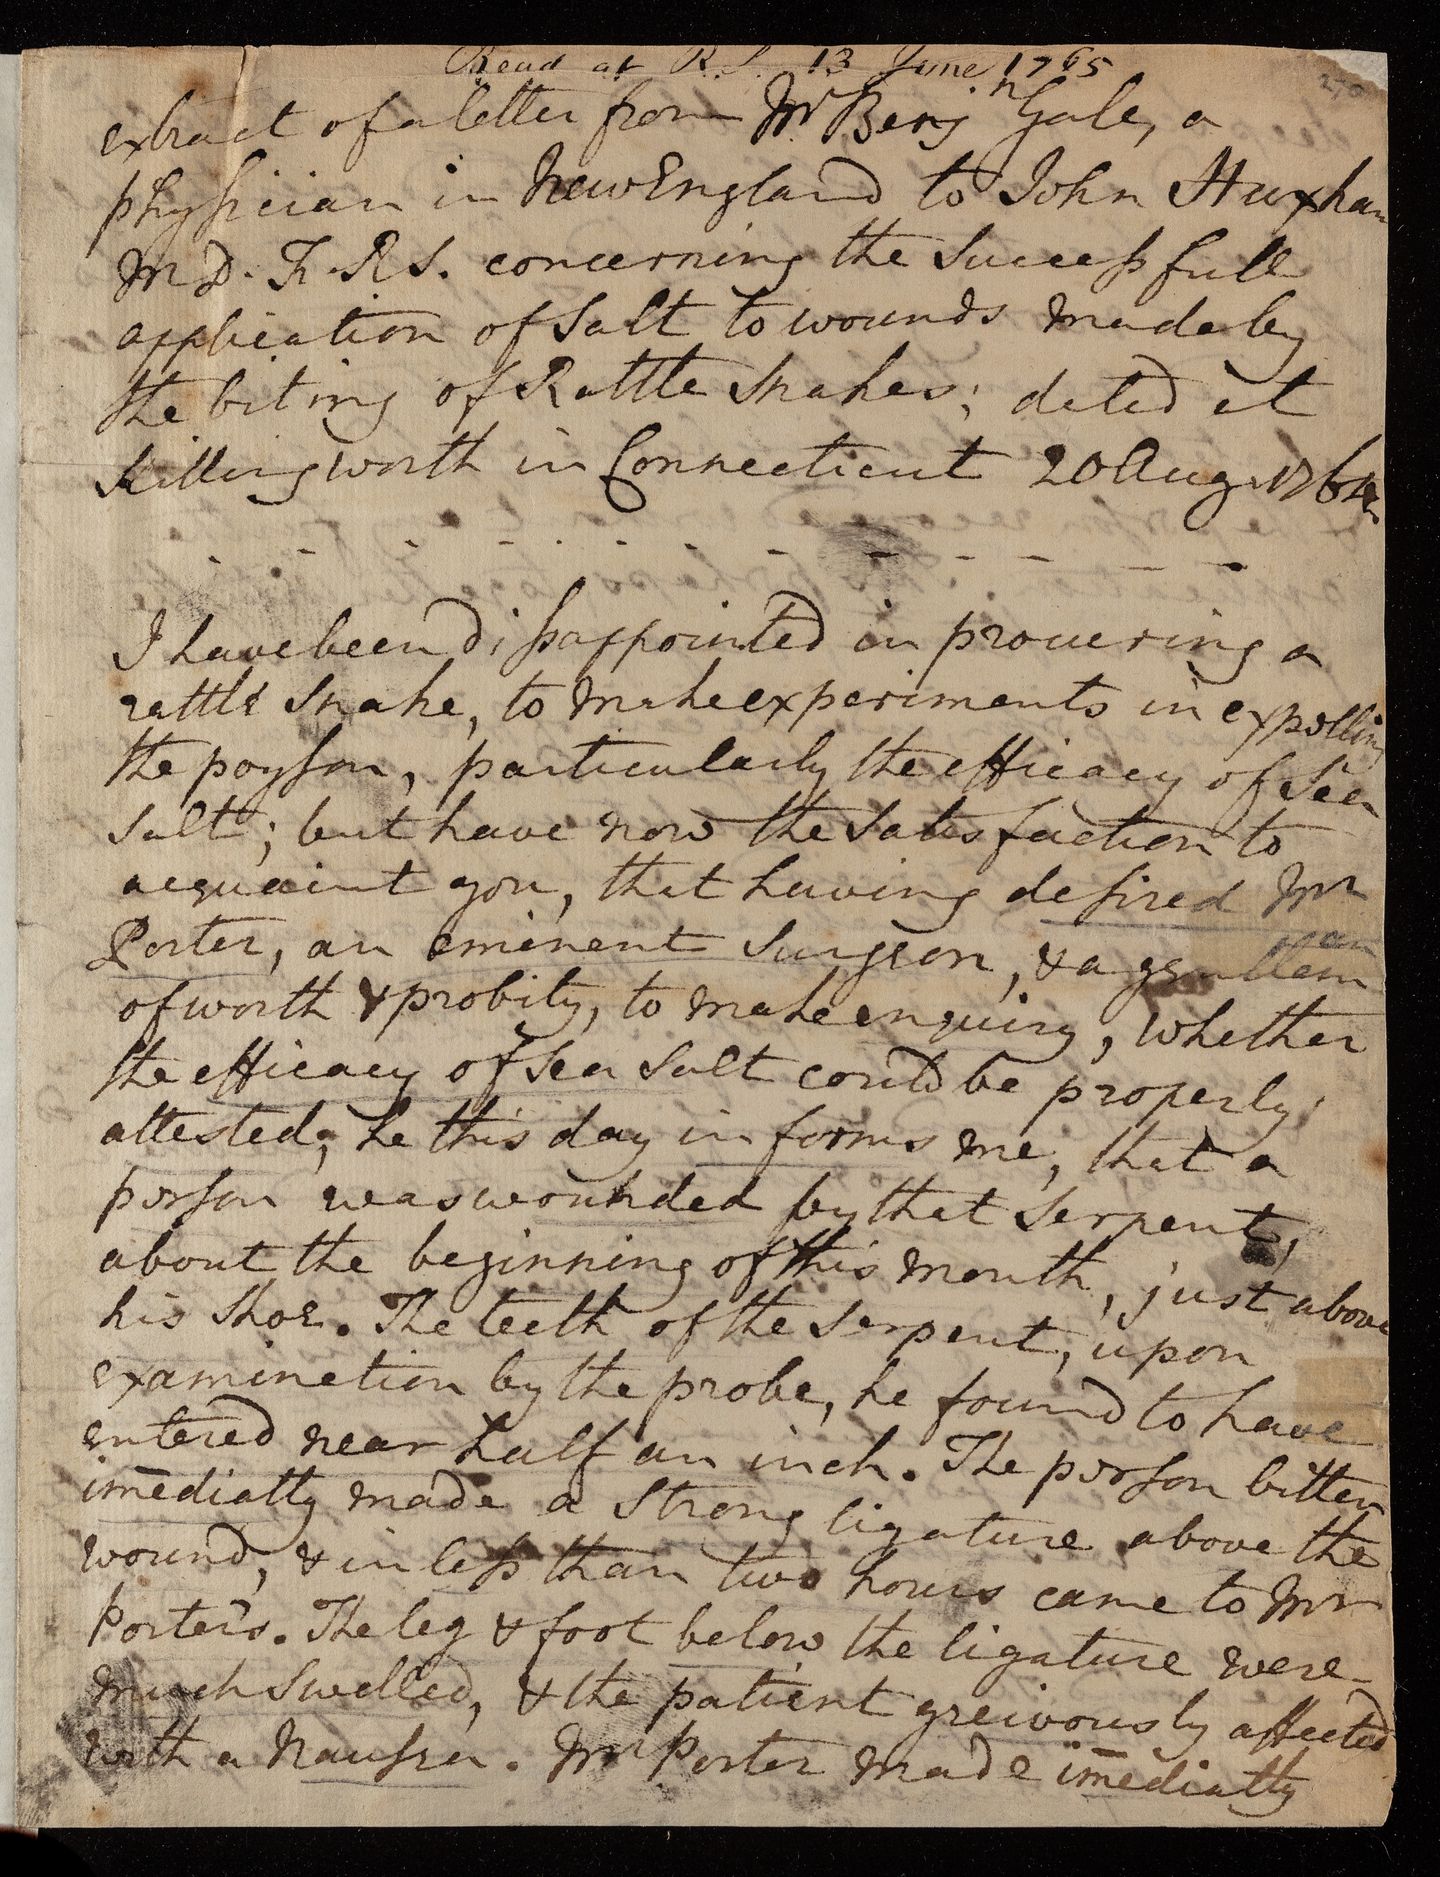 Read at R.S. 13 June 1765
270
extract of a letter from Mr. Benjn Gale, a
physician in New England to John Huxham
M.D. F.R.S. concerning the Successfull
application of Salt to wounds made by
the biting of Rattle Snakes; dated at
Killingworth in Connecticut 20 Aug. 1764
I have been dissappointed in procuering a
rattle Snake, to make experiments in expelling
the poyson, particularly the efficacy of Sea
Salt; but have now the Satisfaction to
acquaint you, that having desired Mr
Porter, an eminent Surgeon, & a gentleman
of worth & probity, to make enquiry, whether
the efficacy of Sea Salt could be properly
attested; he this day informs me, that a
person was wounded by that Serpent,
about the beginning of this month, just above
his Shoe. The teeth of the Serpent, upon
examination by the probe, he found to have
entered near half an inch. The person bitten
imediatly made a Strong ligature above the
wound, & in less than two hours came to Mr
Porter's. The leg & foot below the ligature were
much Swelled, & the patient greivously affected
with a Nausea. Mr Porter made imediatly